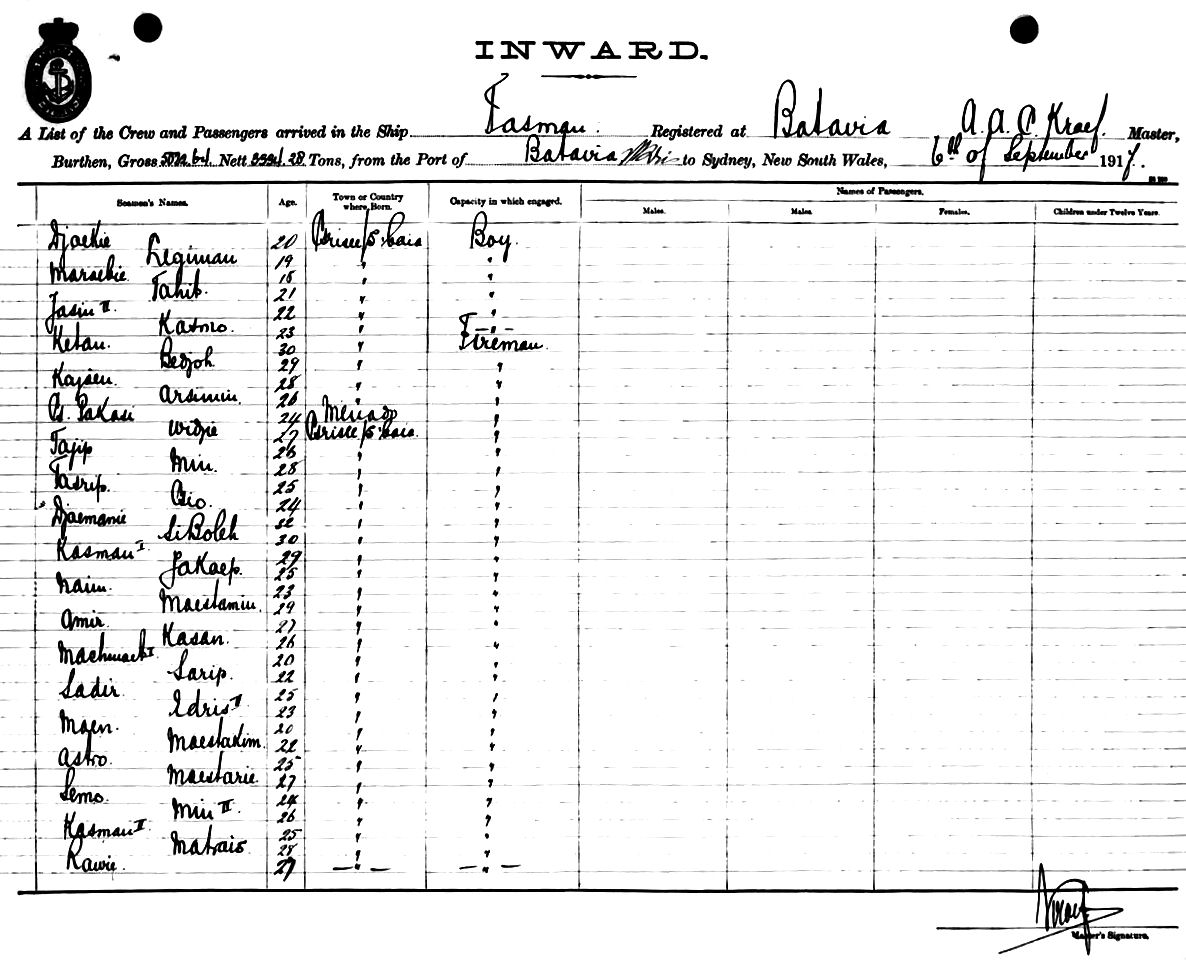 INWARD.
A List of the Crew and Passengers arrived in the Ship Tasman. Registered at Batavia A. A. C. Kraef. Master,
Burthen, Gross Nett Tons, from the Port of Batavia to Sydney, New South Wales, 6th of September 1917.
Seamen's Names. Age. Town or Country where Born. Capacity in which engaged. Names of Passengers.
Males. Males. Females. Children under Twelve Years.
Djaekie 20 Grisee/S:baia Boy.
Legiman 19 " "
Maraekie 18 " "
Tahib. 21 " "
Jasin II. 22 " "
Kasmo. 23 " — " —
Ketan. 30 " Fireman.
Bedjoh. 29 " "
Kajsen. 28 " "
Arsimin. 26 " "
Cs. Pakasi 24 Menado "
Widjie 27 Grisee/S:baia. "
Tajip 26 " "
Min. 28 " "
Tasrip. 25 " "
Gio. 24 " "
Djaemanie 32 " "
Si Boleh 30 " "
Kasman I 29 " "
Jakaep. 25 " "
Naim. 23 " "
Maestamin. 29 " "
Amir. 27 " "
Kasan. 26 " "
Machmaet I 20 " "
Sarip. 22 " "
Sadir. 25 " "
Idris II 23 " "
Maen. 20 " "
Maestakim. 22 " "
Astro. 25 " "
Maestarie. 27 " "
Semo. 24 " "
Min II. 26 " "
Kasman II 25 " "
Matrais. 28 " "
Rawie. 27 — " — — " —
Master's Signature.